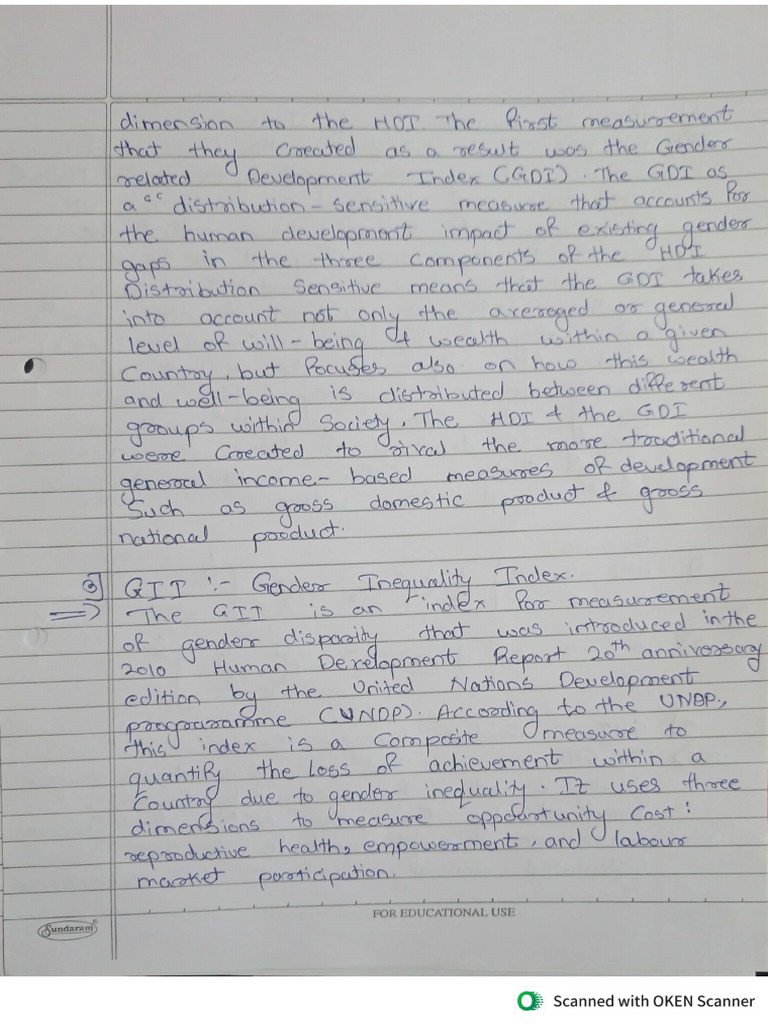 dimension to the HDI. The first measurement
that they created as a result was the Gender
related Development Index (GDI). The GDI as
a "distribution-sensitive measure that accounts for
the human development impact of existing gender
gaps in the three components of the HDI
Distribution sensitive means that the GDI takes
into account not only the avereged or general
level of will-being & wealth within a given
Country, but focuses also on how this wealth
and well-being is distributed between different
groups within Society. The HDI & the GDI
were Created to rival the more traditional
general income-based measures of development
Such as gross domestic product & gross
national product.
3] GII :- Gender Inequality Index.
=> The GII is an index for measurement
of gender disparity that was introduced in the
2010 Human Development Report 20th anniversary
edition by the United Nations Development
programme (UNDP). According to the UNDP,
this index is a Composite measure to
quantify the loss of achievement within a
Country due to gender inequality. It uses three
dimensions to measure opportunity Cost:
reproductive health, empowerment, and labour
market participation.
FOR EDUCATIONAL USE
Sundaram
Scanned with OKEN Scanner